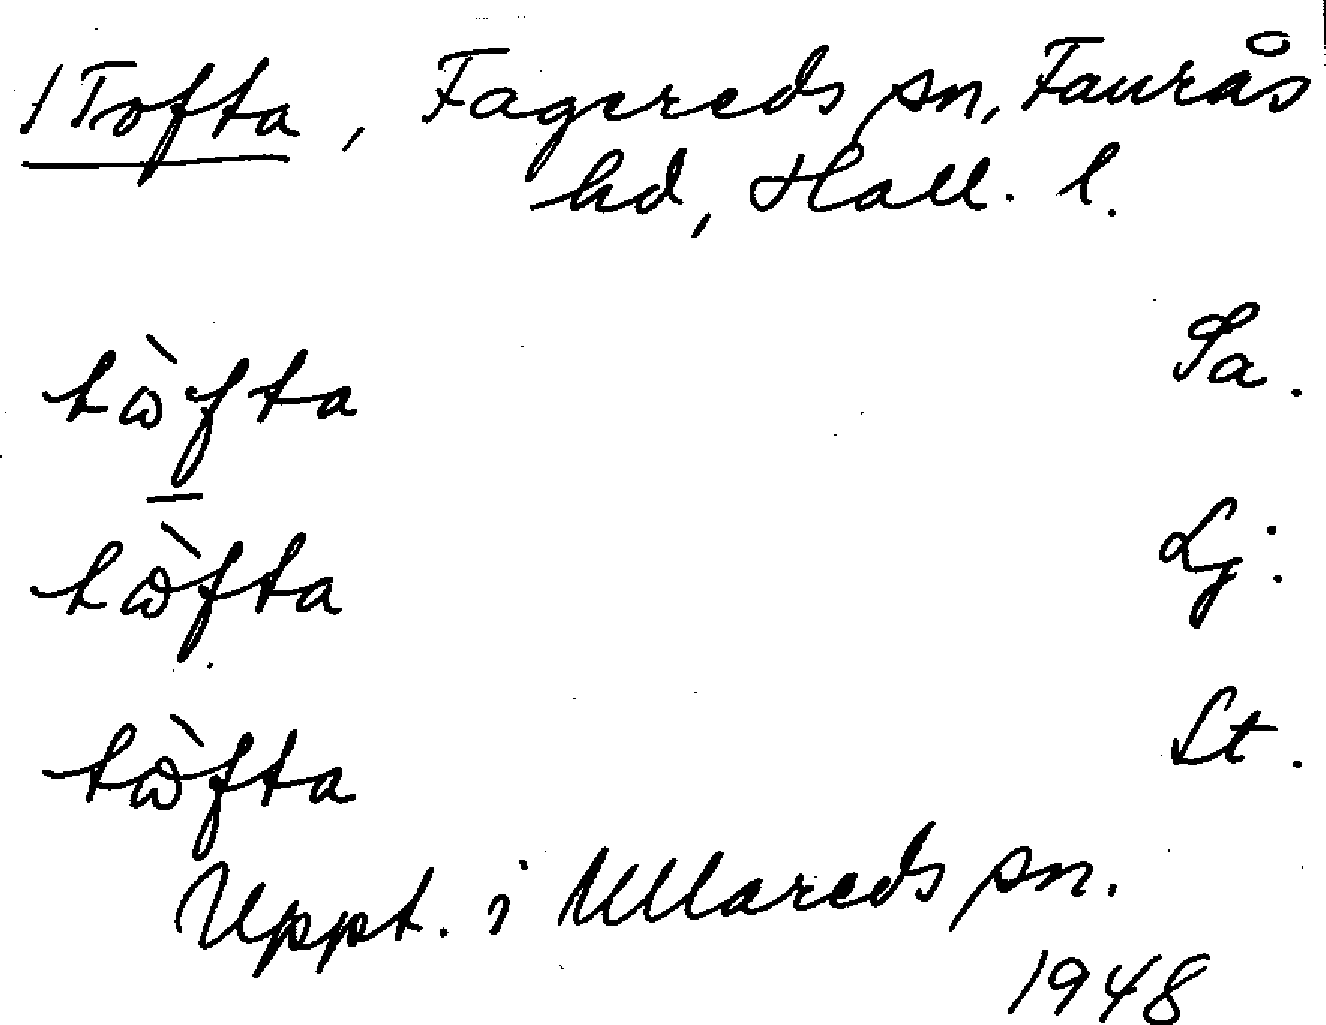 / Tofta, Fagereds sn, Faurås
hd, Hall. l.
tɷ̀fta Sa.
tɷ̀fta Lj.
tɷ̀fta St.
Uppt. i Ullareds sn.
1948